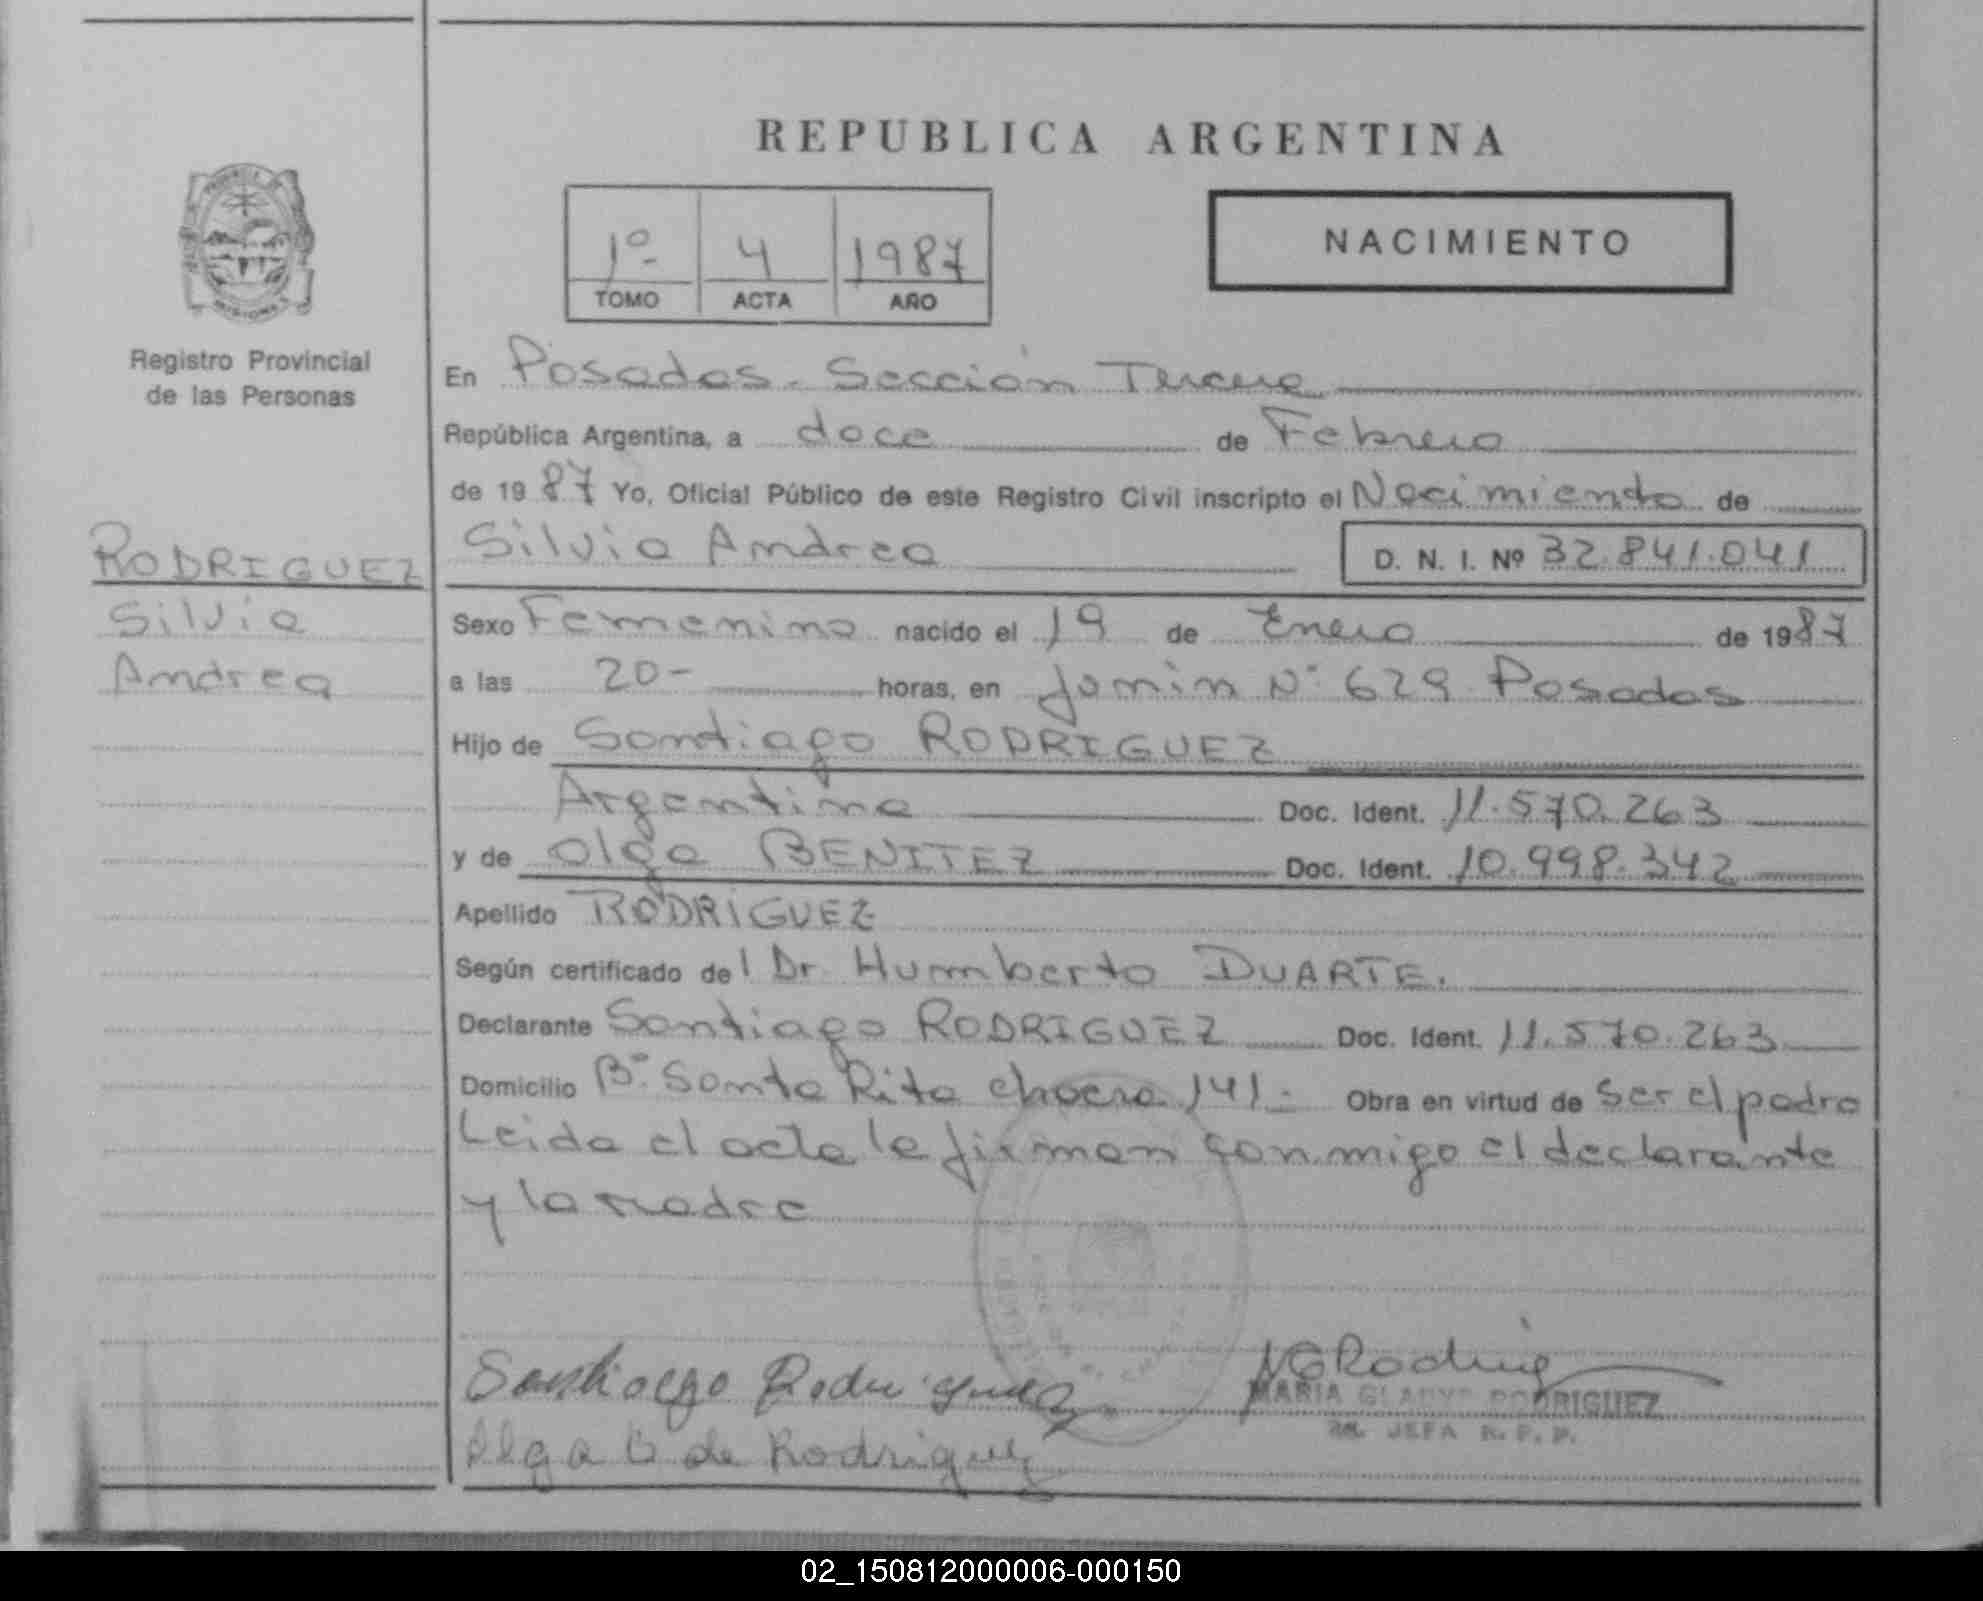 REPUBLICA ARGENTINA
1º 4 1987
TOMO ACTA AÑO
NACIMIENTO
Registro Provincial
de las Personas
RODRIGUEZ
Silvia
Andrea
En Posadas - Sección Tercera
República Argentina, a doce de Febrero
de 1987 Yo, Oficial Público de este Registro Civil inscripto el Nacimiento de
Silvia Andrea D. N. I. Nº 32.841.041
Sexo Femenino nacido el 19 de Enero de 1987
a las 20- horas, en Junin Nº 629 Posadas
Hijo de Santiago RODRIGUEZ
Argentina Doc. Ident. 11.570.263
y de Olga BENITEZ Doc. Ident. 10.998.342
Apellido RODRIGUEZ
Según certificado del Dr. Humberto DUARTE.
Declarante Santiago RODRIGUEZ Doc. Ident. 11.570.263
Domicilio Bº Santa Rita chacra 141- Obra en virtud de ser el padre
Leida el acta la firman conmigo el declarante
y la madre
Santiago Rodriguez
Olga B de Rodriguez
MGRodrig
MARIA GLADYS RODRIGUEZ
JEFA R. P. P.
02_150812000006-000150